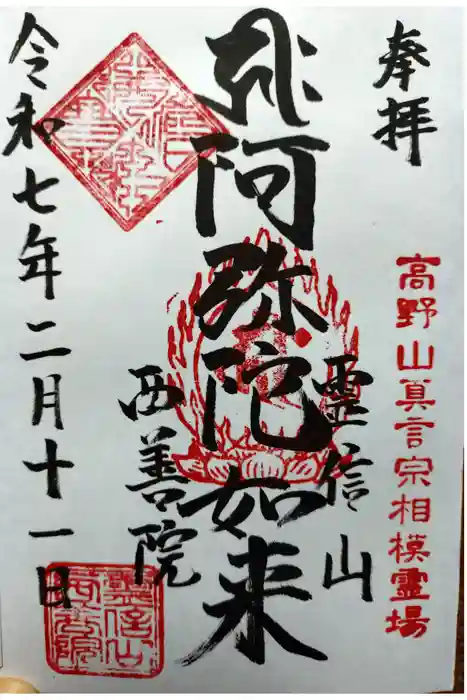 奉拝
高野山真言宗相模霊場
霊信山
阿弥陀如来
西善院
令和七年二月十一日